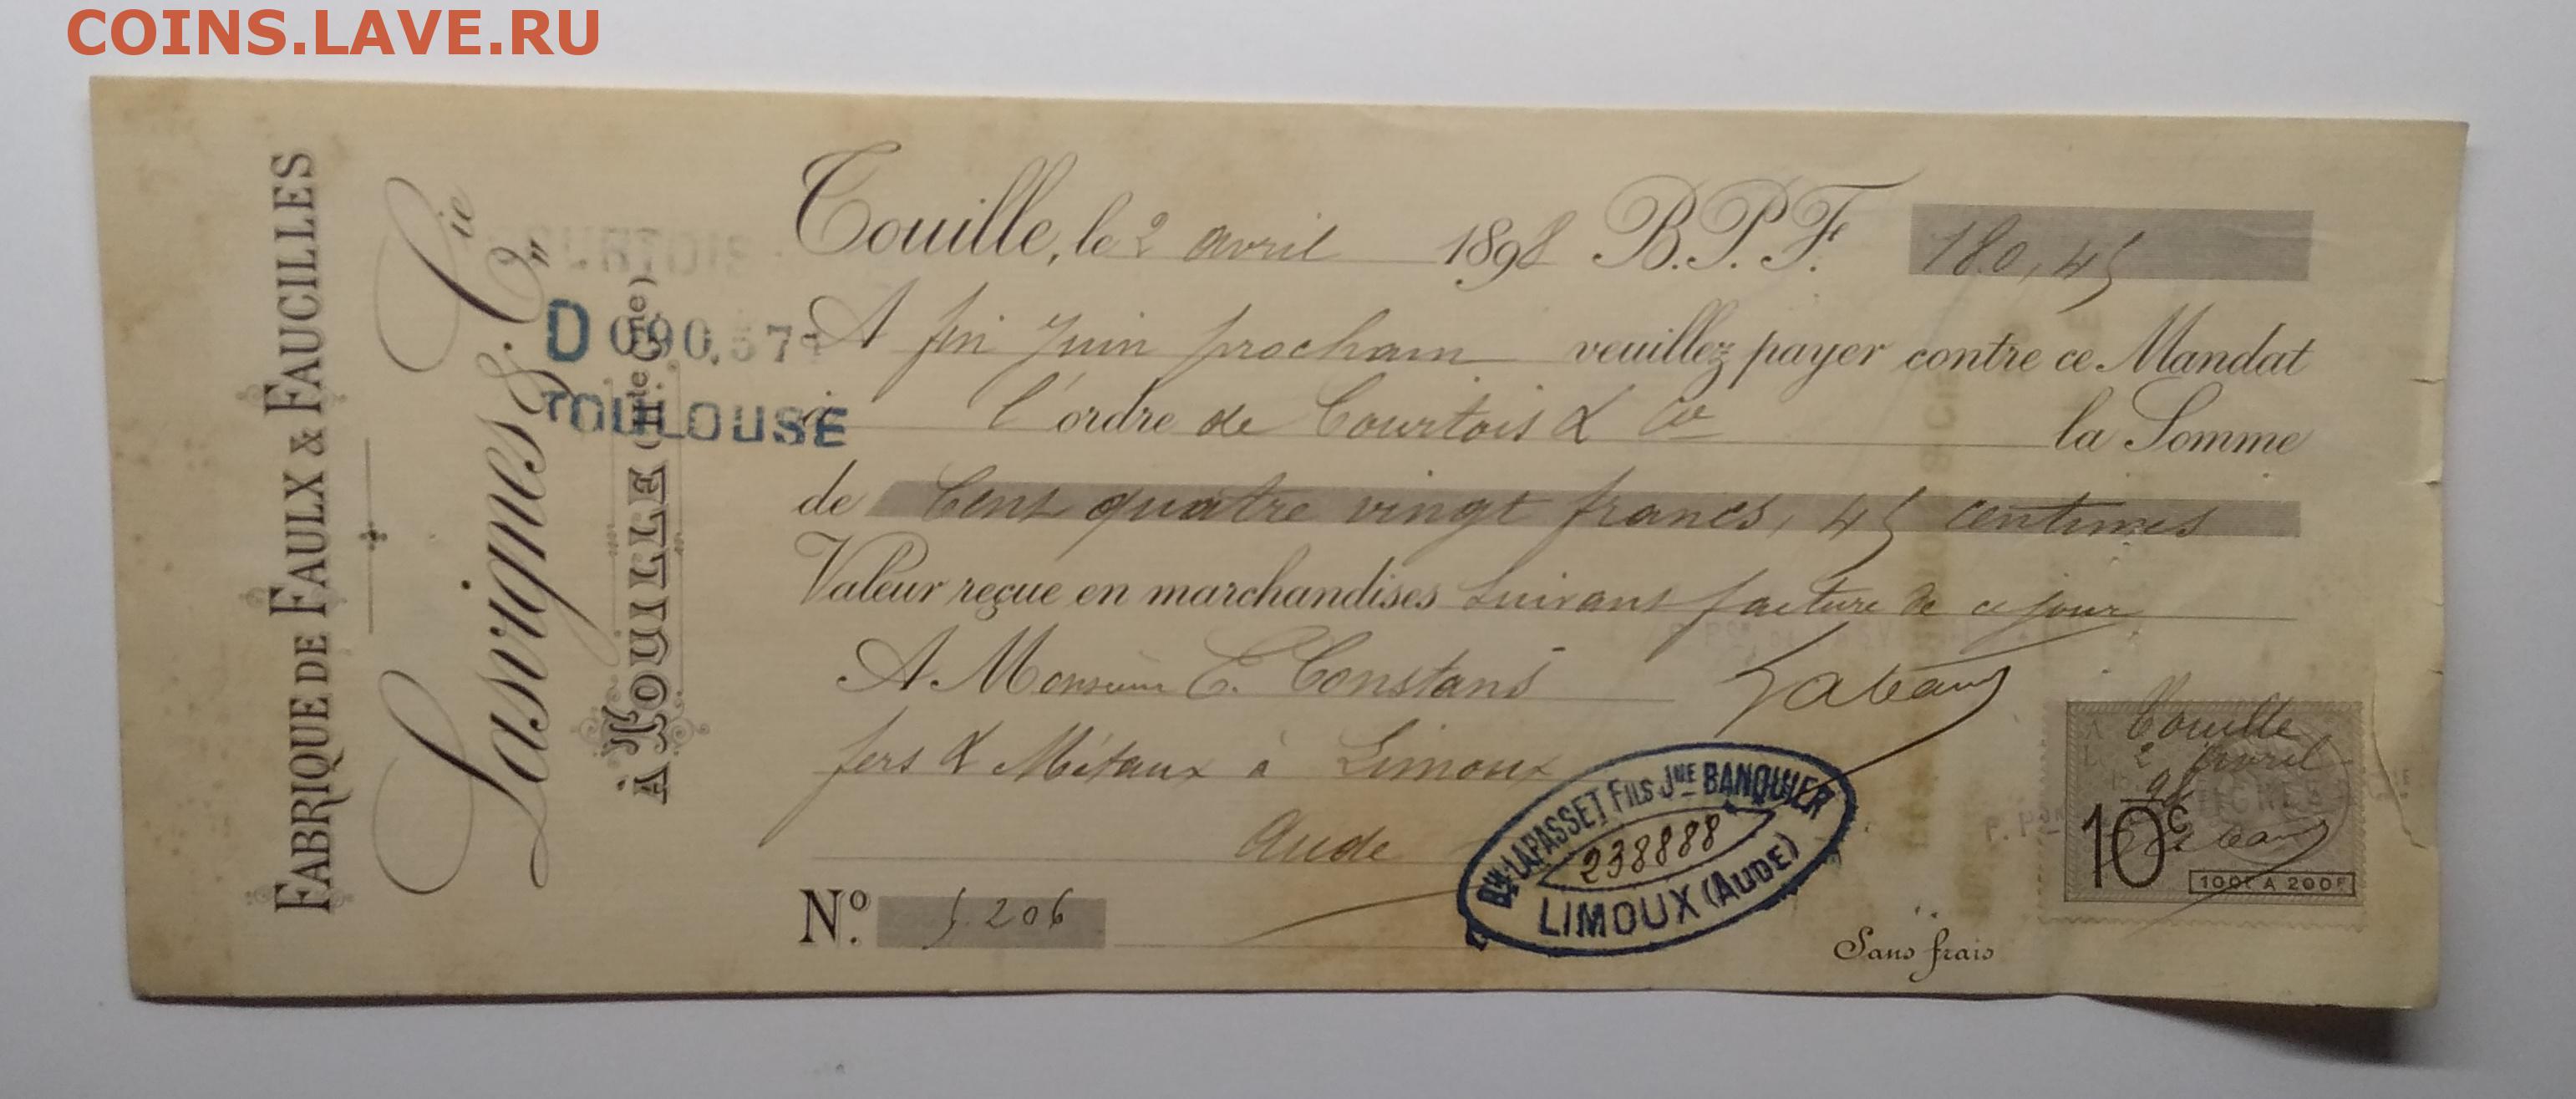 COINS.LAVE.RU
FABRIQUE DE FAULX & FAUCILLES
Lasvignes & Cie
À TOUILLE (Hte Gne)
D 090.57
TOULOUSE
Touille, le 2 avril 1898 B.P.F. 180,45
A fin Juin prochain veuillez payer contre ce Mandat
à l'ordre de Courtois & Cie la Somme
de Cent quatre vingt francs, 45 centimes
Valeur reçue en marchandises suivant facture de ce jour
A Monsieur C. Constans
fers & Métaux à Limoux
Aude
No. 5.206
LAPASSET FILS JNE BANQUIER
238888
LIMOUX (AUDE)
Sans frais
Touille
2 Avril
98
10c
100F A 200F